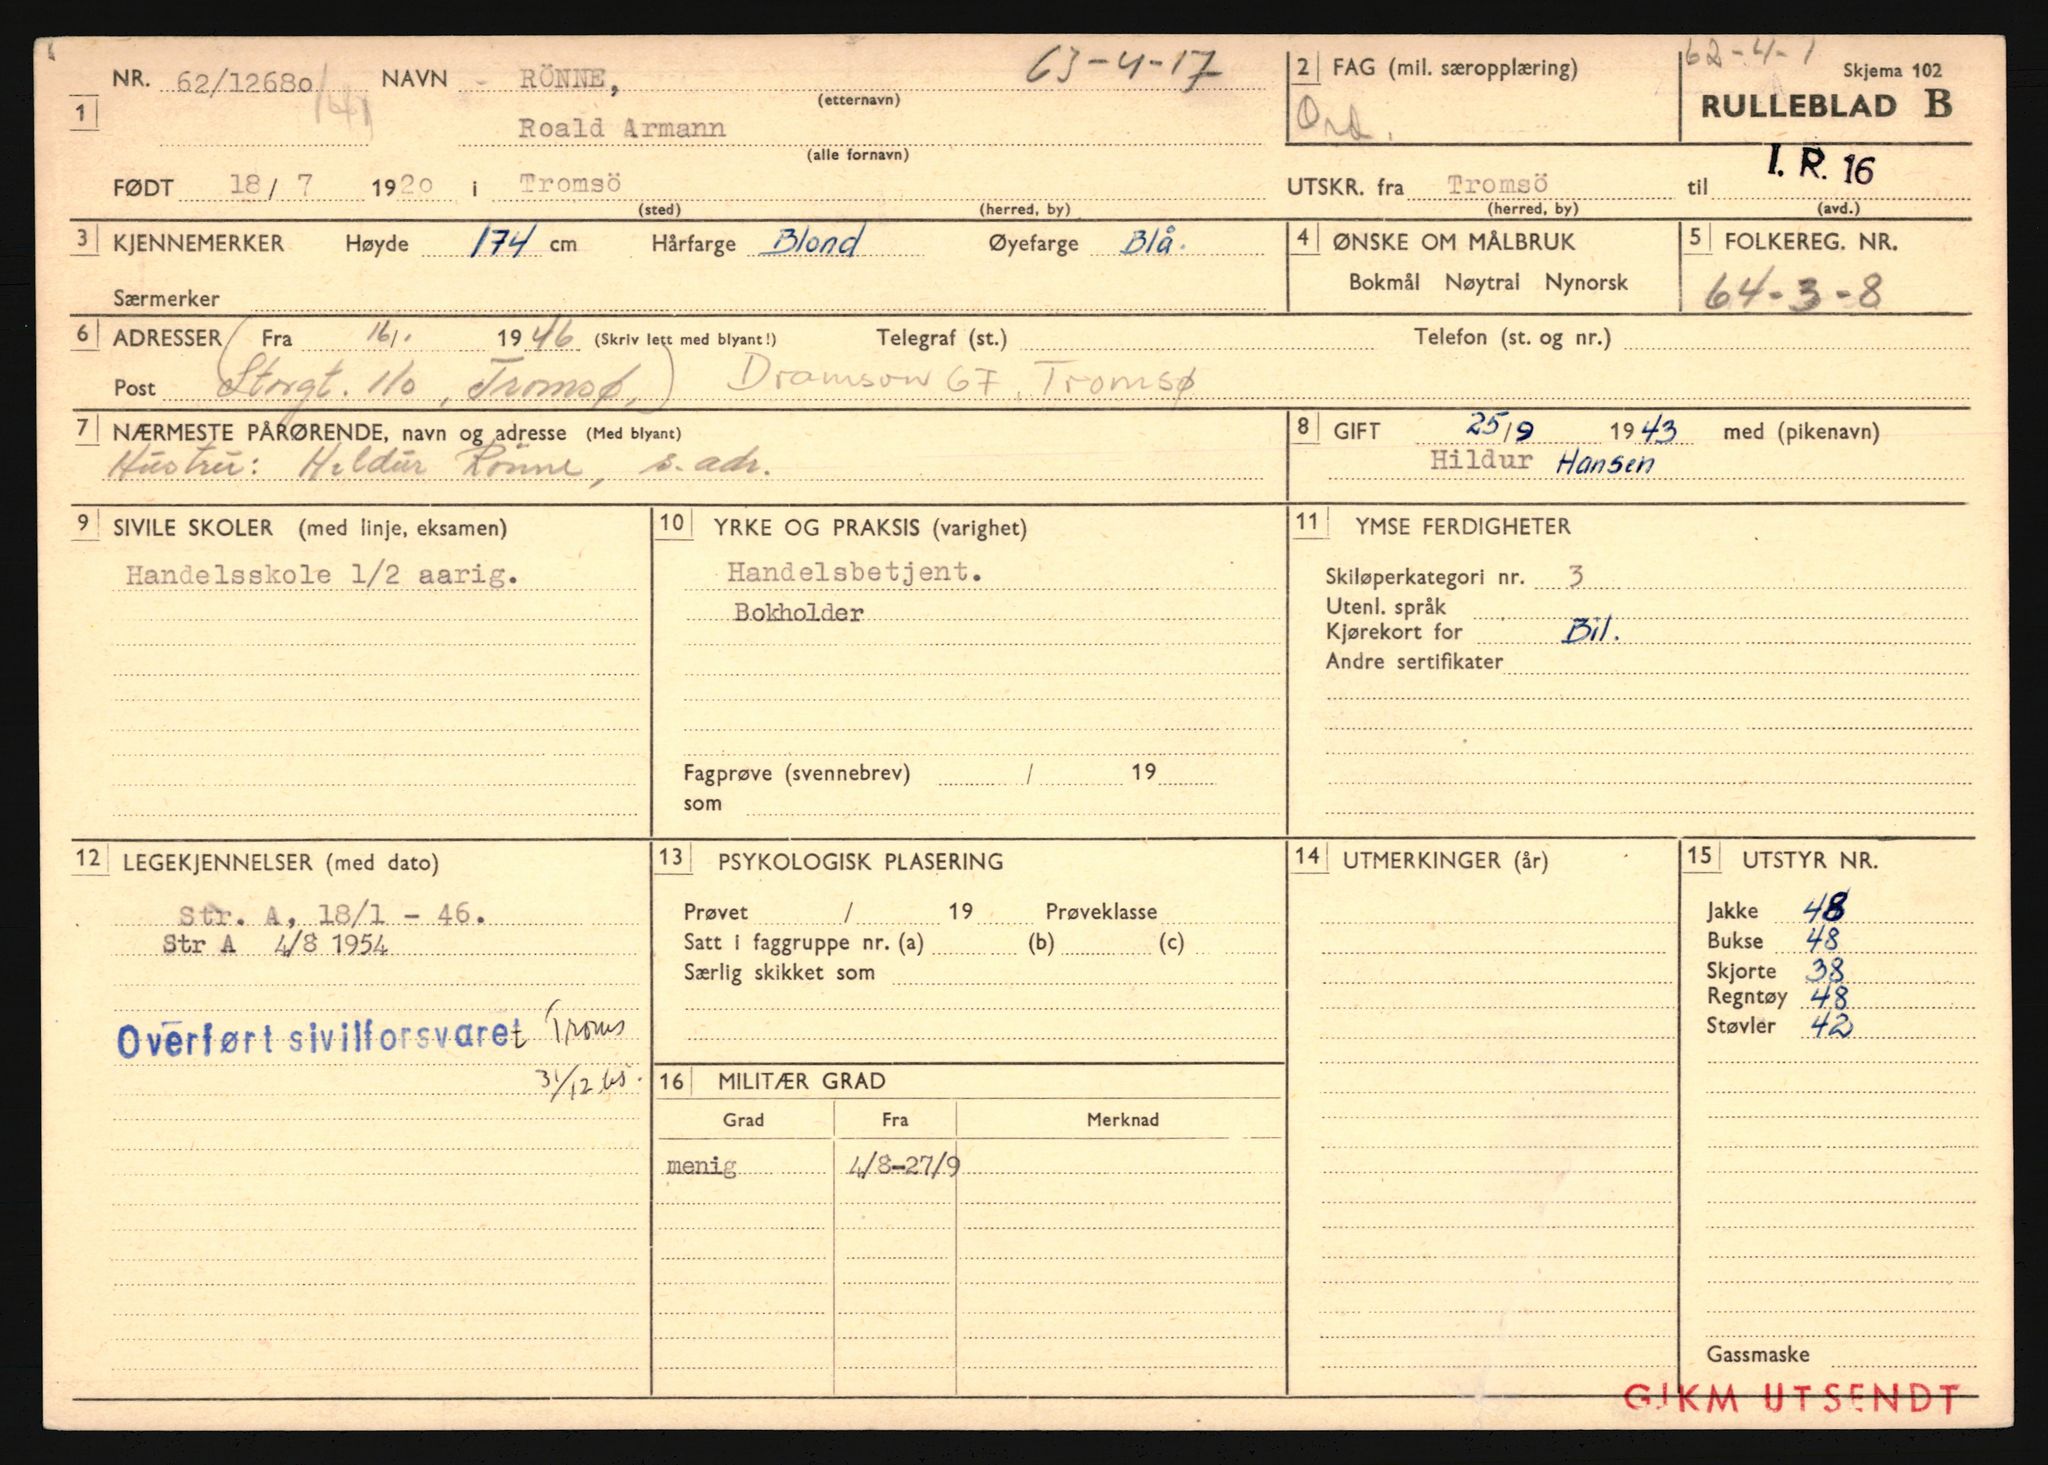 NR. 62/12680 NAVN - RÖNNE, 63-4-17
(etternavn)
1
Roald Armann
(alle fornavn)
FØDT 18/ 7 1920 i Tromsö
(sted) (herred, by)
2 FAG (mil. særopplæring)
Ord.
62-4-1
Skjema 102
RULLEBLAD B
I.R. 16
UTSKR. fra Tromsö til
(herred, by) (avd.)
3 KJENNEMERKER Høyde 174 cm Hårfarge Blond Øyefarge Blå.
Særmerker
4 ØNSKE OM MÅLBRUK
Bokmål Nøytral Nynorsk
5 FOLKEREG. NR.
64-3-8
6 ADRESSER (Fra 16/1. 1946 (Skriv lett med blyant!) Telegraf (st.) Telefon (st. og nr.)
Post Storgt. 110, Tromsø,) Dramsvn 67, Tromsø
7 NÆRMESTE PÅRØRENDE, navn og adresse (Med blyant)
Hustru: Hildur Rönne, s. adr.
8 GIFT 25/9 1943 med (pikenavn)
Hildur Hansen
9 SIVILE SKOLER (med linje, eksamen)
Handelsskole 1/2 aarig.
10 YRKE OG PRAKSIS (varighet)
Handelsbetjent.
Bokholder
Fagprøve (svennebrev) / 19
som
11 YMSE FERDIGHETER
Skiløperkategori nr. 3
Utenl. språk
Kjørekort for Bil.
Andre sertifikater
12 LEGEKJENNELSER (med dato)
Str. A, 18/1 - 46.
Str A 4/8 1954
Overført sivilforsvaret Troms
31/12 65.
13 PSYKOLOGISK PLASERING
Prøvet / 19 Prøveklasse
Satt i faggruppe nr. (a) (b) (c)
Særlig skikket som
16 MILITÆR GRAD
Grad Fra Merknad
menig 4/8-27/9
14 UTMERKINGER (år)
15 UTSTYR NR.
Jakke 48
Bukse 48
Skjorte 38
Regntøy 48
Støvler 42
Gassmaske
GJKM UTSENDT